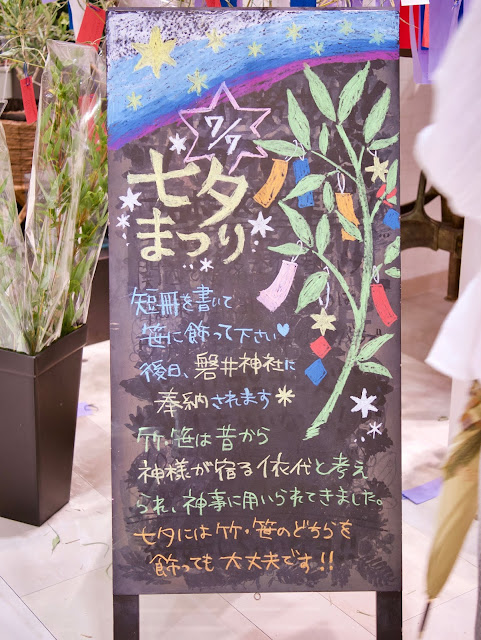 7/7
七夕
まつり
短冊を書いて
笹に飾って下さい♥
後日、磐井神社に
奉納されます
竹・笹は昔から
神様が宿る依代と考え
られ、神事に用いられてきました。
七夕には竹・笹のどちらを
飾っても大丈夫です!!